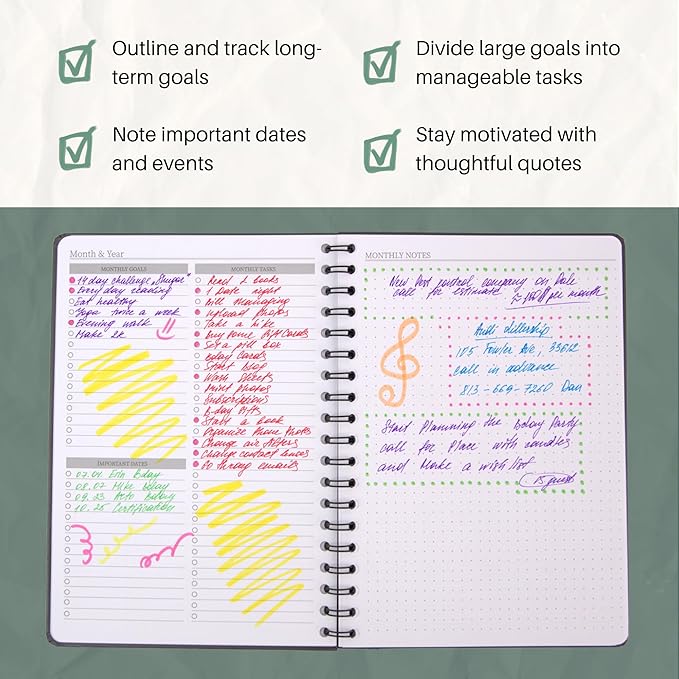 Outline and track long-
term goals
Divide large goals into
manageable tasks
Note important dates
and events
Stay motivated with
thoughtful quotes
Month & Year
MONTHLY GOALS
14 day challenge „Shugar"
Everyday reading
Eat healthy
Yoga twice a week
Evening walk
Make 2k
IMPORTANT DATES
07. 04. Erin bday
08. 07 Mike bday
09. 23 Auto bday
10. 25 Certification
MONTHLY TASKS
Read 2 books
1 Date night
Bill managing
Upload Photos
Take a like
Buy some Gift Cards
Set a pill box
Bday Cards
Start blog
Wash Sheets
Print Photos
Subscriptions
B-day gifts
Start a book
Organize Phone Photos
Change air filters
Change contact lenses
Go through emails
MONTHLY NOTES
New pest control company on Dale
call for estimate
150$ per month
dillership
105 Fowler Ave, 33612
call in advance
813-669-7260 Dan
Start planning the bday Party
call for Place with candles
and Make a wish list
15 guest